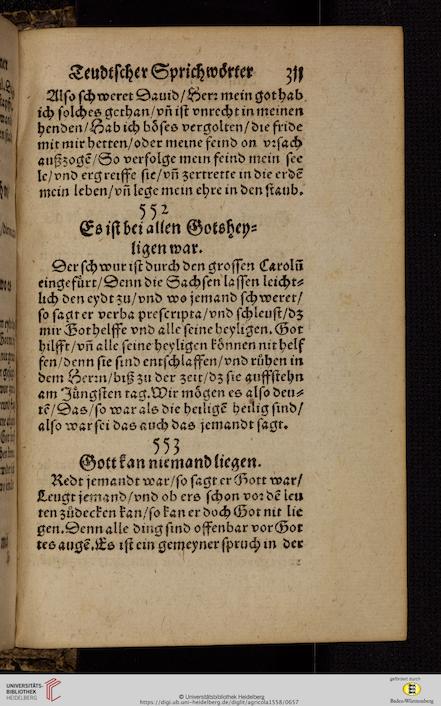 Teudtscher Sprichwörter
Also schweret Dauid/Herꝛ mein got hab
ich solches gethan/vn̄ ist vnrecht in meinen
henden/Hab ich böses vergolten/die fride
mit mir hetten/oder meine feind on vꝛsach
außzogē/So verfolge mein feind mein see
le/vnd ergreiffe sie/vn̄ zertrette in die erdē
mein leben/vn̄ lege mein ehre in den staub.
552
Es ist bei allen Gotshey⸗
ligen war.
Der schwur ist durch den grossen Carolū
eingefürt/Denn die Sachsen lassen leicht⸗
lich den eydt zu/vnd wo jemand schweret/
so sagt er verba prescripta/vnd schleust/dz
mir Got helffe vnd alle seine heyligen. Got
hilfft/vn̄ alle seine heyligen können nit helf
fen/denn sie sind entschlaffen/vnd rühen in
dem Herꝛn/biß zu der zeit/dz sie auffstehn
am Jüngsten tag. Wir mögen es also deu⸗
tē/Das/so war als die heiligē heilig sind/
also war sei das auch das jemandt sagt.
553
Gott kan niemand liegen.
Redt jemandt war/so sagt er Gott war/
Leugt jemand/vnd ob ers schon voꝛ dē leu
ten zůdecken kan/so kan er doch Got nit lie
gen. Denn alle ding sind offenbar vor Got
tes augē. Es ist ein gemeyner spruch in der
UNIVERSITÄTS-
BIBLIOTHEK
HEIDELBERG
© Universitätsbibliothek Heidelberg
https://digi.ub.uni-heidelberg.de/diglit/agricola1558/0657
gefördert durch
Baden-Württemberg